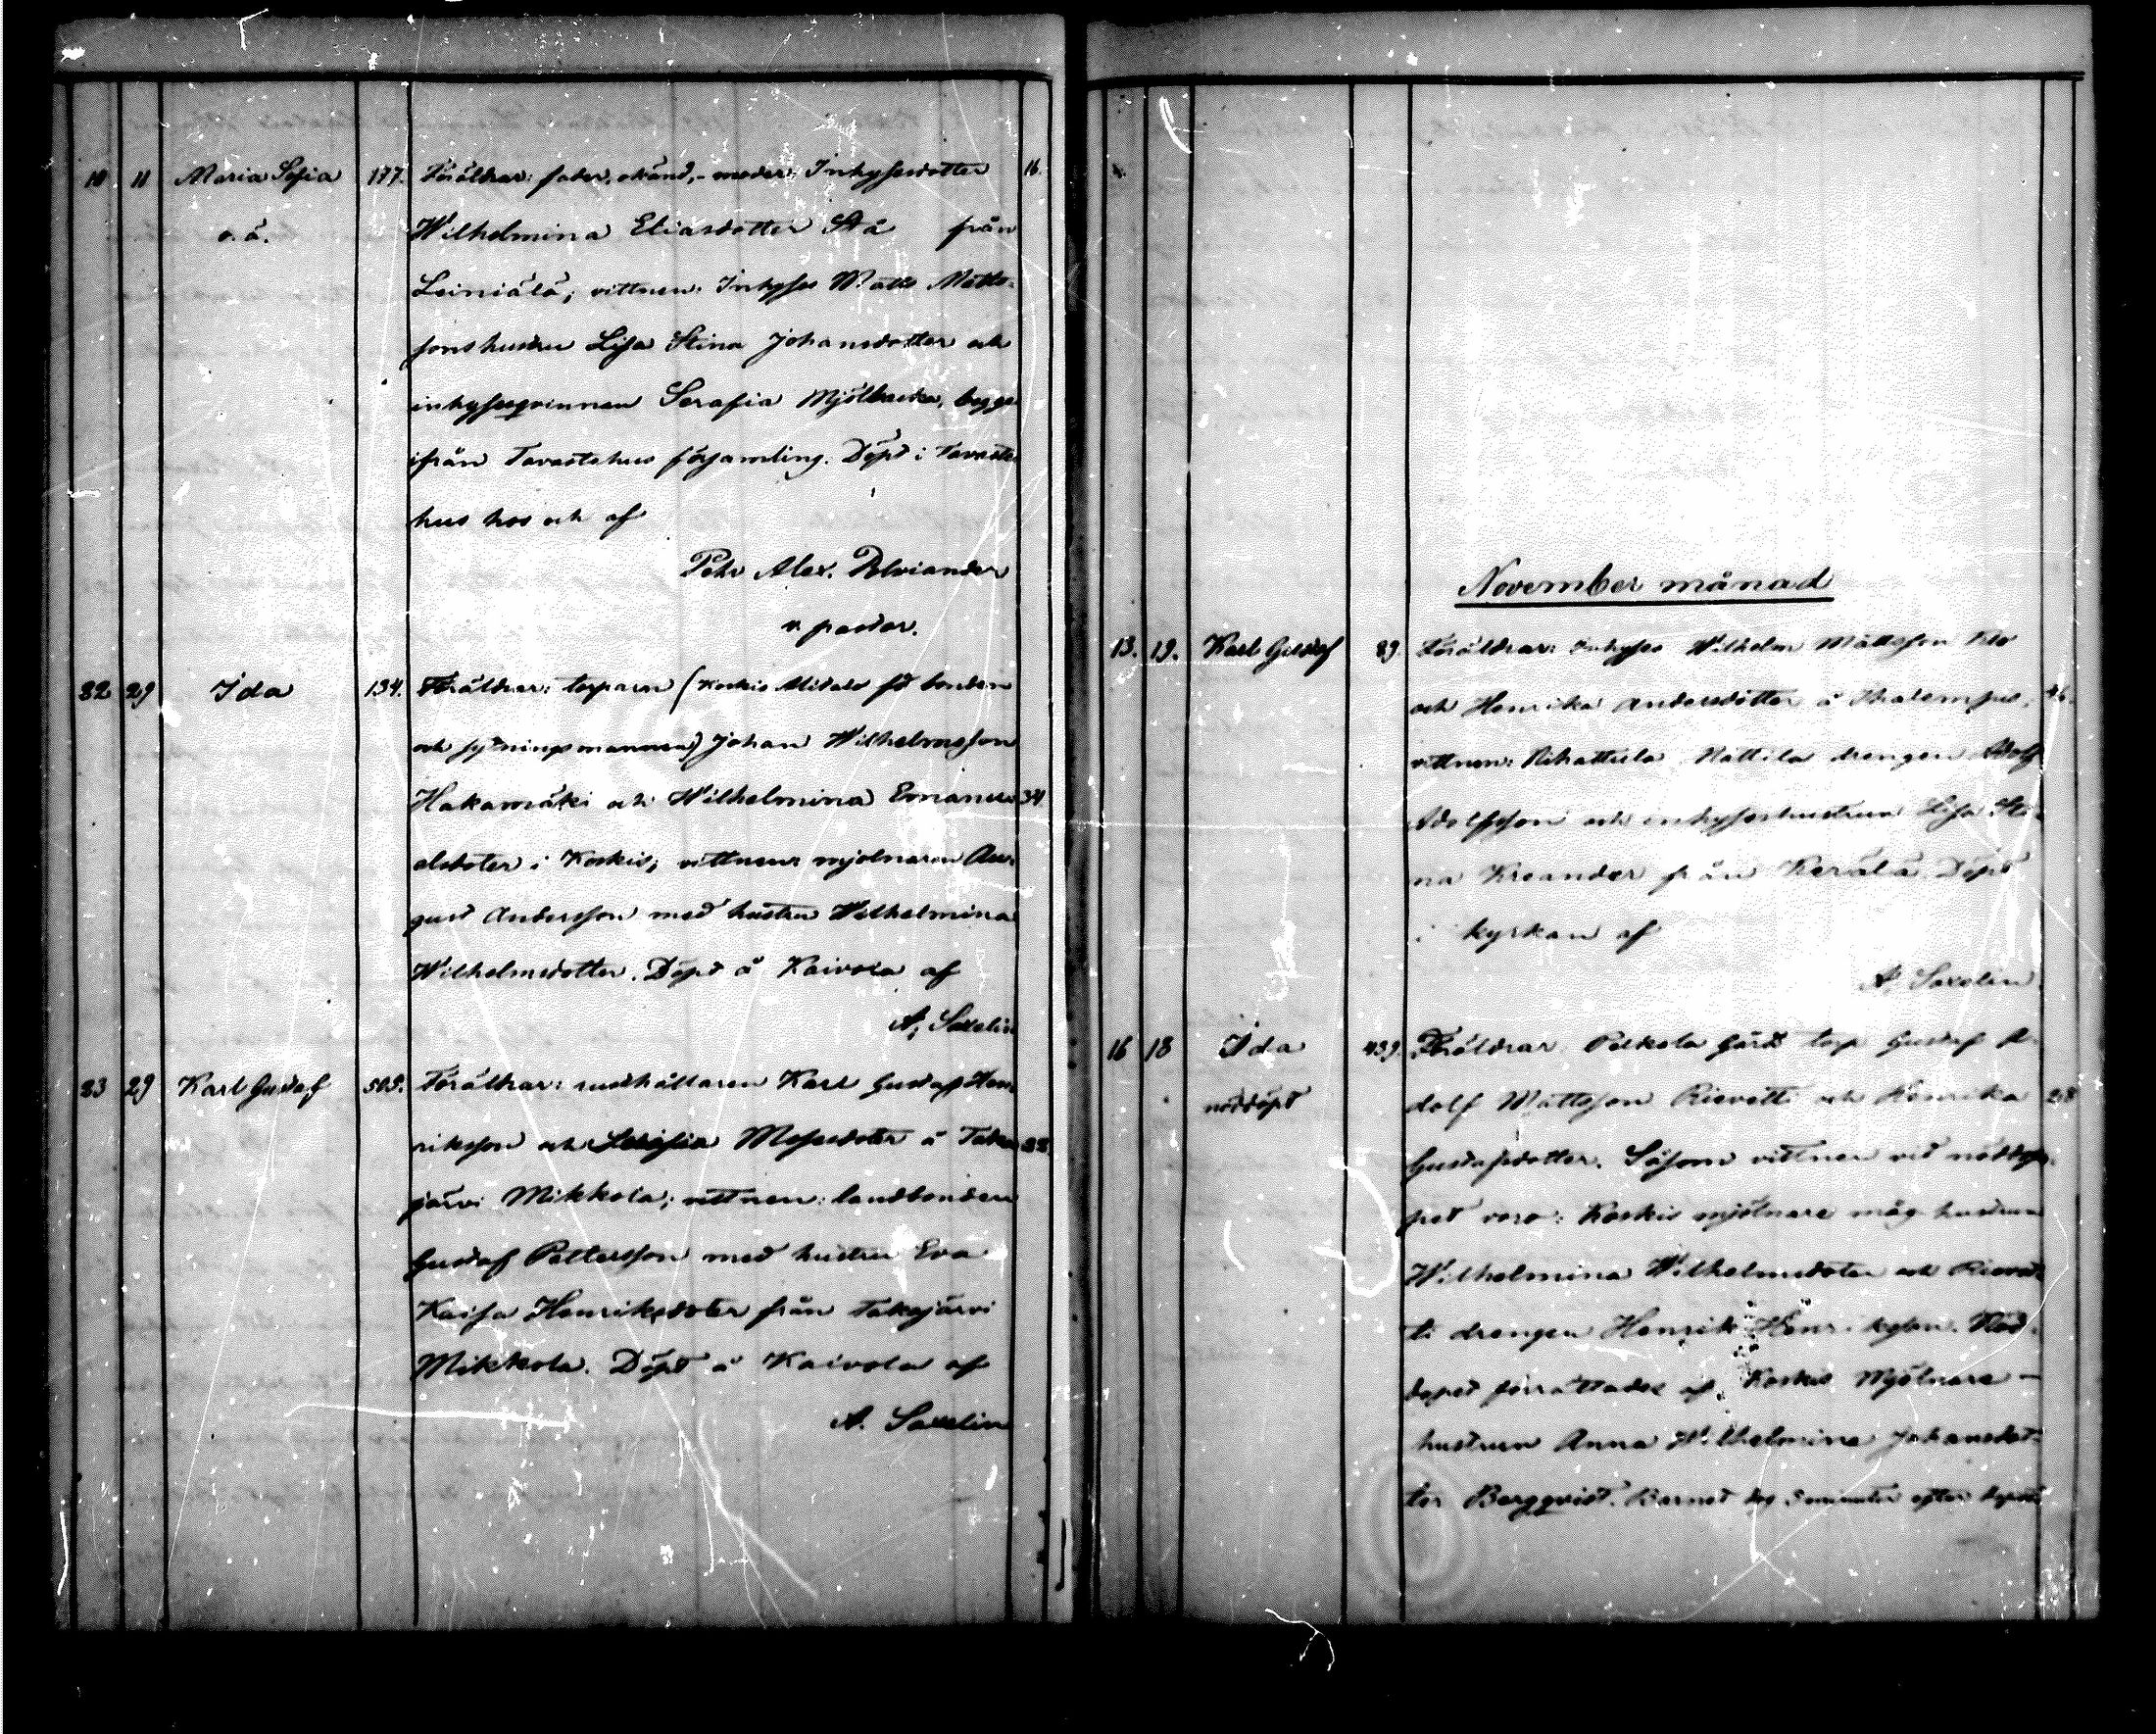 10 11 Maria Sofia 177. Föräldrar: fader, okänd, - moder: Inhysesdotter 16.
o.ä. Wilhelmina Eliasdotter Stå från
Leiniälä; vittnen: Inhyses Matts Matts-
sons hustru Lisa Stina Johansdotter och
inhysesqvinnan Serafia Mjölbacka, begge
ifrån Tavastehus församling. Döpt i Tavaste
hus hos och af
Petr Alex. Relviander
v. pastor.
22 29 Ida 134. Föräldrar: torparen (Koskis Alitalo fd bonden
och sytningsmannen) Johan Wilhelmsson
Hakamäki och Wilhelmina Emanu- 34
elsdoter i Koskis; vittnen: mjölnaren Au-
gust Andersson med hustru Wilhelmina
Wilhelmsdotter. Döpt å Kaivola af
A. Saxelin
23 29 Karl Gustaf 505. Föräldrar: rusthållaren Karl Gustaf Hen-
riksson och Mosesdoter å Taka-
järvi Mikkola; vittnen: landbonden
Gustaf Pettersson med hustru Eva
Kaisa Henriksdoter från Takajärvi
Mikkola. Döpt å Kaivola af
A. Saxelin
November månad
13. 19. Karl Gustaf 89. Föräldrar: Inhyses Wilhelm Mattsson
och Henrika Andersdotter å 46.
vittnen: Rihattula Mattila drengen Adolf
Adolfsson och inhyseshustrun Lisa Sti-
na Kreander från Kerälä. Döpt
i kyrkan af
A. Saxelin
16 18 Ida 439. Föräldrar: Pelkola Gård torp. Gustaf A-
nöddöpt dolf Mattsson Rievetti och Henrika 28
Gustafsdotter. Såsom vittnen vid nöddo-
pet voro: Koskis mjölnare måg hustrun
Wilhelmina Wilhelmsdoter och Rievet-
ti drengen Henrik Henriksson. Nöd-
dopet förrättades af Koskis Mjölnare-
hustrun Anna Wilhelmina Johansdot-
ter Bergqvist. Barnet dog 5 minuter efter dopet.